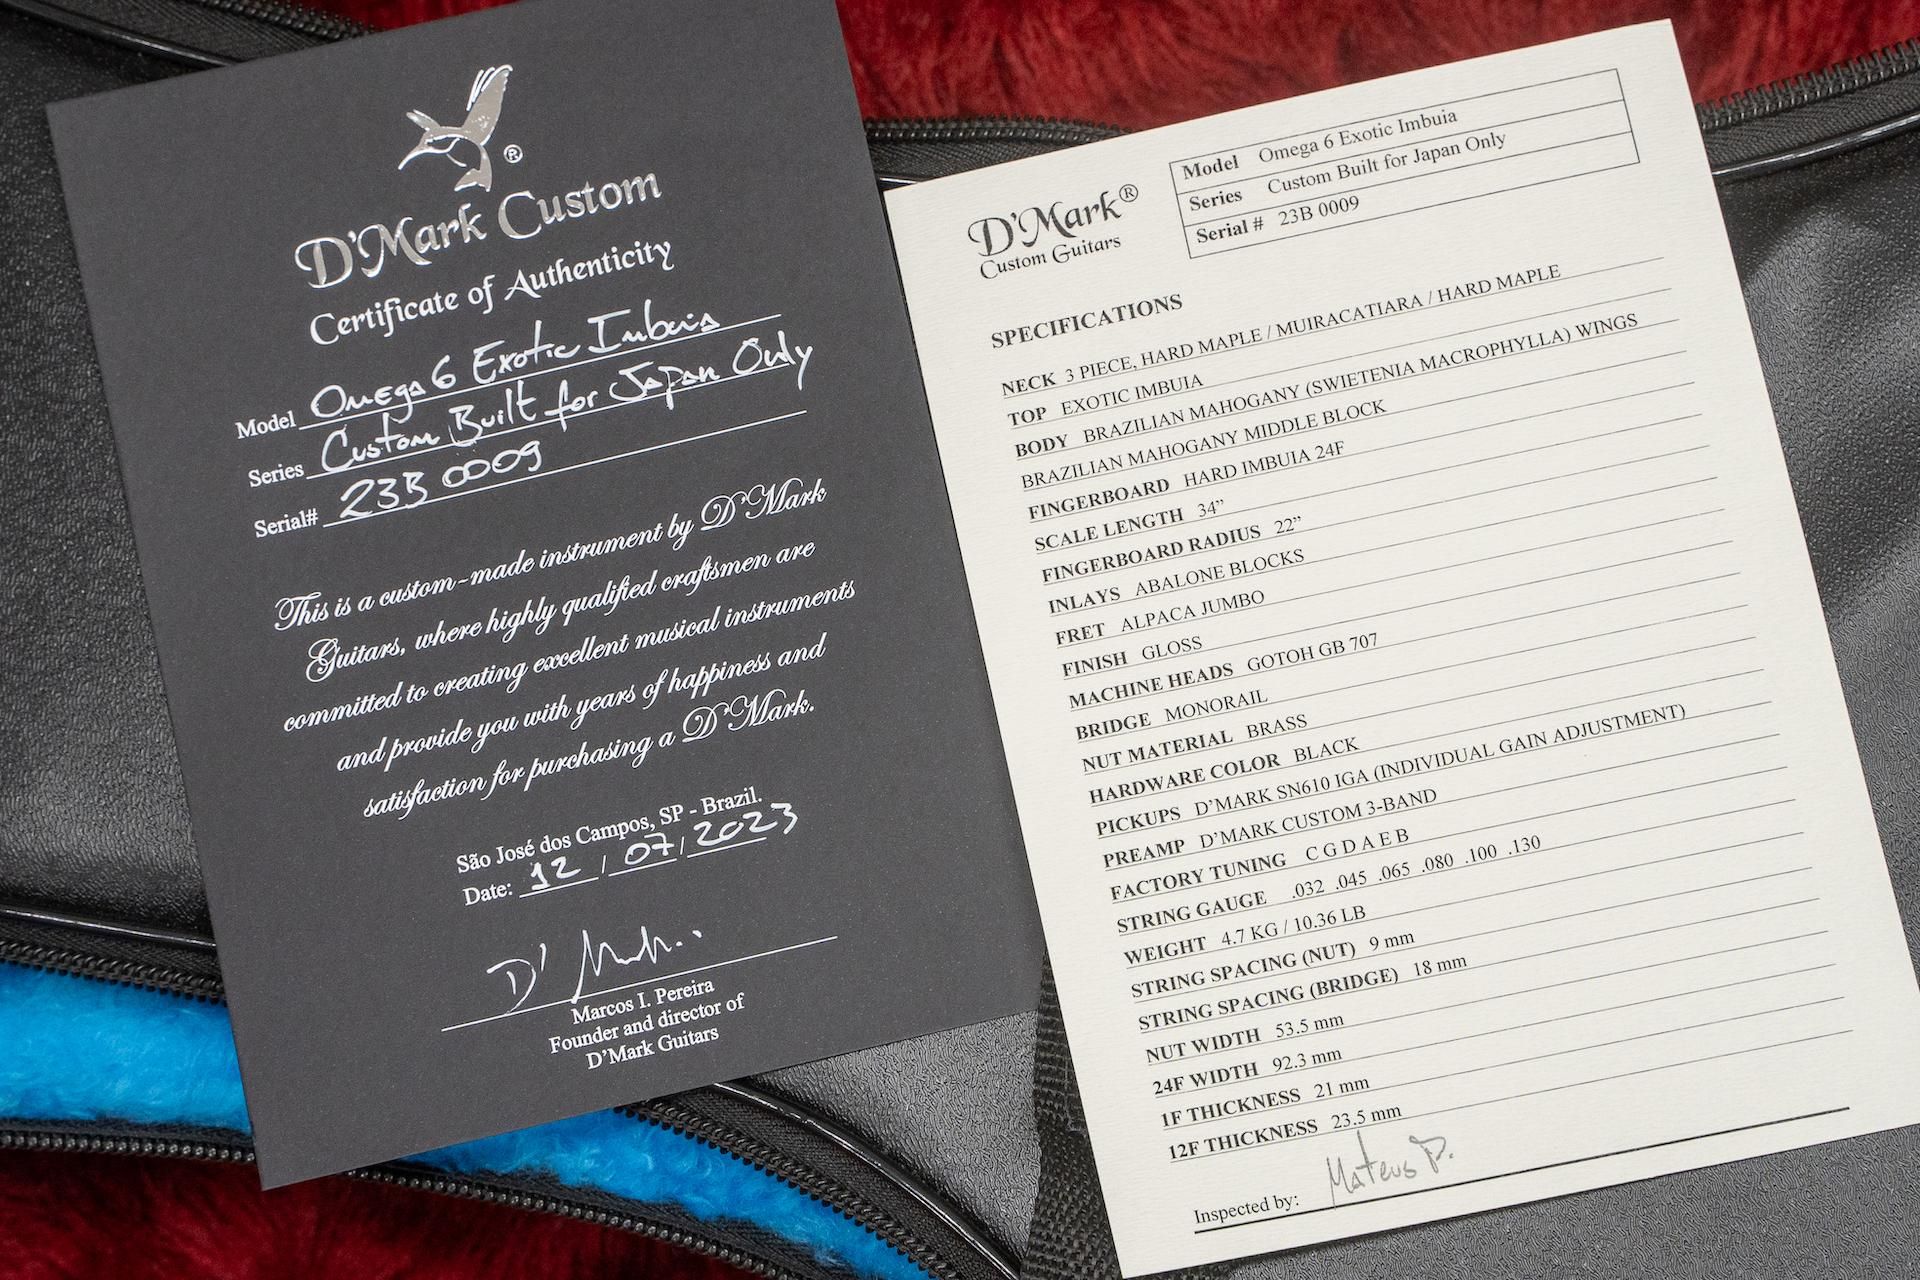 ®
D'Mark Custom
Certificate of Authenticity
Model Omega 6 Exotic Imbuia
Series Custom Built for Japan Only
Serial# 23B 0009
This is a custom-made instrument by D'Mark
Guitars, where highly qualified craftsmen are
committed to creating excellent musical instruments
and provide you with years of happiness and
satisfaction for purchasing a D'Mark.
São José dos Campos, SP - Brazil.
Date: 12 / 07 / 2023
D' Mark..
Marcos I. Pereira
Founder and director of
D'Mark Guitars
D'Mark®
Custom Guitars
Model Omega 6 Exotic Imbuia
Series Custom Built for Japan Only
Serial # 23B 0009
SPECIFICATIONS
NECK 3 PIECE, HARD MAPLE / MUIRACATIARA / HARD MAPLE
TOP EXOTIC IMBUIA
BODY BRAZILIAN MAHOGANY (SWIETENIA MACROPHYLLA) WINGS
BRAZILIAN MAHOGANY MIDDLE BLOCK
FINGERBOARD HARD IMBUIA 24F
SCALE LENGTH 34”
FINGERBOARD RADIUS 22”
INLAYS ABALONE BLOCKS
FRET ALPACA JUMBO
FINISH GLOSS
MACHINE HEADS GOTOH GB 707
BRIDGE MONORAIL
NUT MATERIAL BRASS
HARDWARE COLOR BLACK
PICKUPS D’MARK SN610 IGA (INDIVIDUAL GAIN ADJUSTMENT)
PREAMP D’MARK CUSTOM 3-BAND
FACTORY TUNING C G D A E B
STRING GAUGE .032 .045 .065 .080 .100 .130
WEIGHT 4.7 KG / 10.36 LB
STRING SPACING (NUT) 9 mm
STRING SPACING (BRIDGE) 18 mm
NUT WIDTH 53.5 mm
24F WIDTH 92.3 mm
1F THICKNESS 21 mm
12F THICKNESS 23.5 mm
Inspected by: Mateus P.